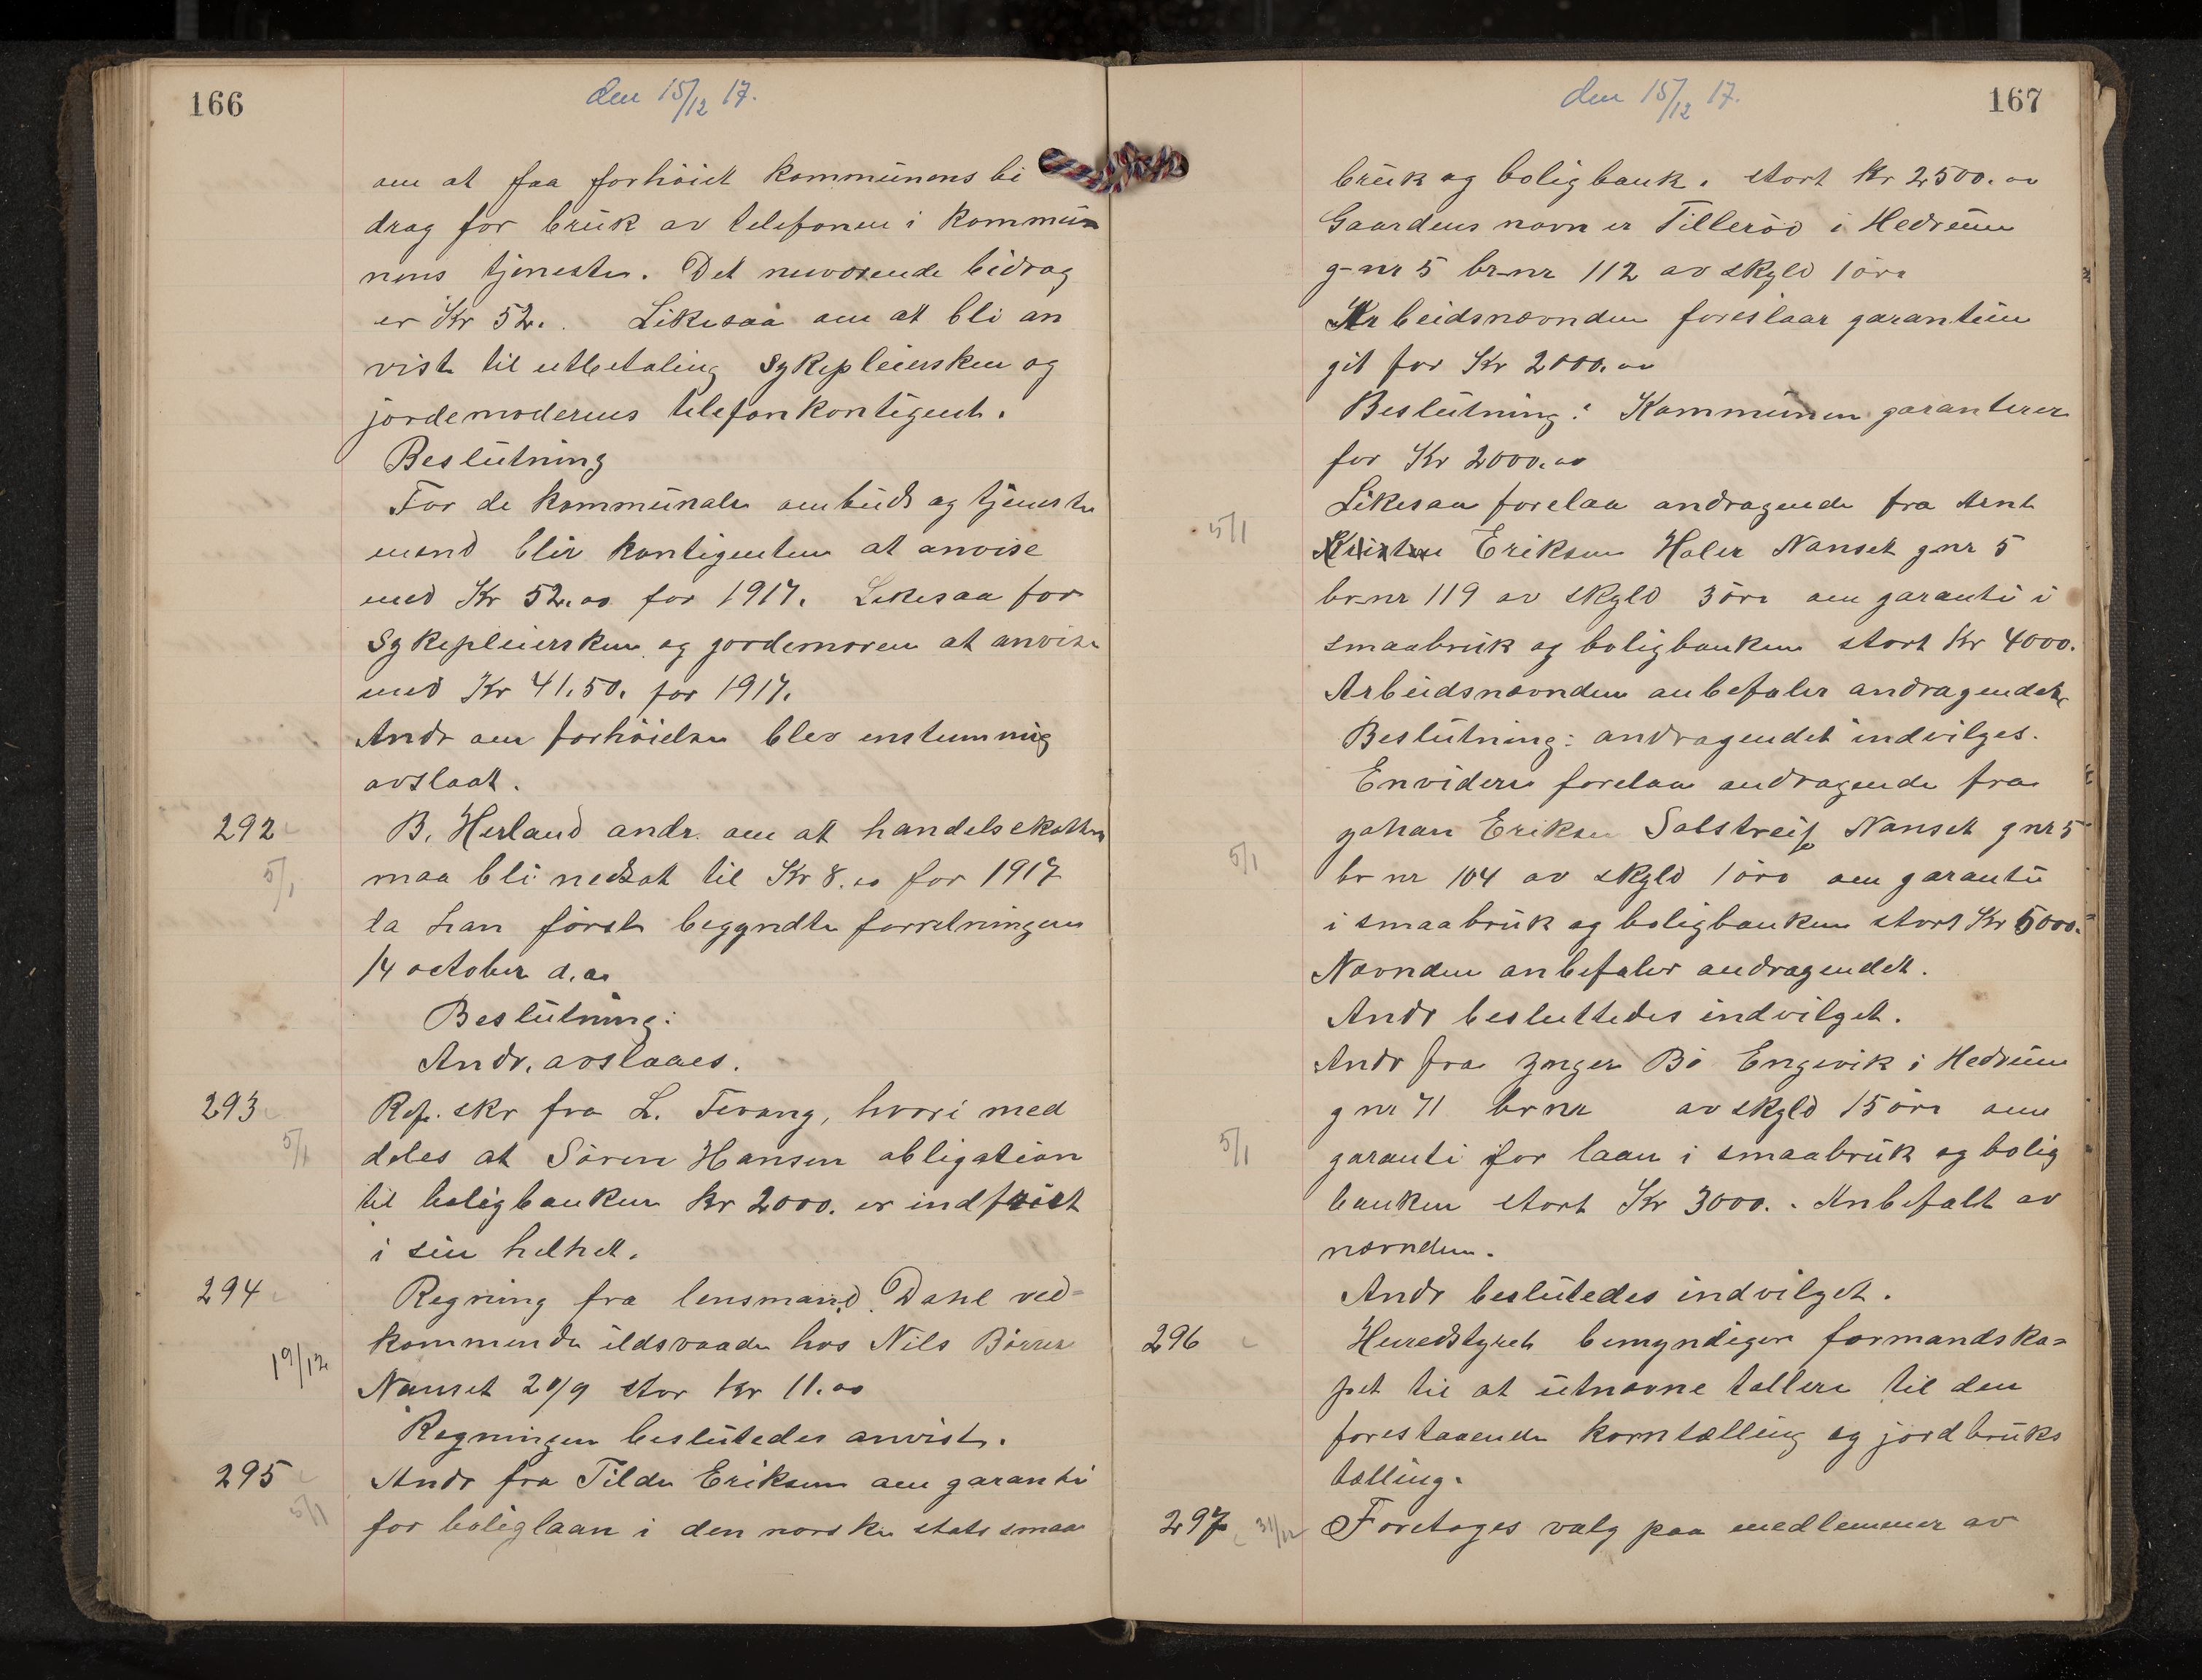 166
den 15/12 17.
om at faa forhöiet kommunens bi
drag for bruk av telefonen i kommu
nens tjeneste. Det nuværende bidrag
er Kr 52. Likesaa om at bli an
vist til utbetaling Sykepleiersken og
jordemoderens telefonkontigent.
Beslutning
For de kommunale ombuds og tjeneste
mænd blir kontigenten at anvise
med Kr 52.00 for 1917. Likesaa for
Sykepleiersken og jordemoren at anvise
med Kr 41.50. for 1917.
Andr om forhöielse blev enstemmig
avslaat.
292
5/1
B. Herland andr. om at handelsskatten
maa bli nedsat til Kr 8.00 for 1917
da han först begyndte forretningen
14 october d.a.
Beslutning:
Andr. avslaaes.
293
5/1
Ref. skr fra L. Tevang, hvori med
deles at Sören Hansen obligation
til boligbanken kr 2000. er indfriet
i sin helhet.
294
19/12
Regning fra lensmand Dahl ved=
kommende ildsvaade hos Nils Börrer
Nanset 20/9 stor Kr 11.00
Regningen beslutedes anvist.
295
5/1
Andr fra Tilda Eriksen om garanti
for boliglaan i den norske stats smaa
den 15/12 17.
167
bruk og boligbank. stort kr 2500.00
Gaardens navn er Tilleröd i Hedrum
g-nr 5 br-nr 112 av skyld 1 öre
Arbeidsnævnden foreslaar garantien
git for Kr 2000.00
Beslutning: Kommunen garanterer
for Kr 2000.00
5/1
Likesaa forelaa andragende fra Arnt
Eriksen Holer Nanset gnr 5
br-nr 119 av skyld 3 öre om garanti i
smaabruk og boligbanken stort Kr 4000.
Arbeidsnævnden anbefaler andragendet
Beslutning: andragendet indvilges.
Envidere forelaa andragende fra
5/1
Johan Eriksen Solstreif Nanset gnr 5
br nr 104 av skyld 1 öre om garanti
i smaabruk og boligbanken stort Kr 5000.
Nævnden anbefaler andragendet.
Andr besluttedes indvilget.
Andr fra Ynger Bö Engevik i Hedrum
g nr 71 br nr av skyld 15 öre om
5/1
garanti for laan i smaabruk og bolig
banken stort Kr 3000. Anbefalt av
nævnden.
Andr beslutedes indvilget.
296
Herredstyret bemyndiger formandska=
pet til at utnævne tællere til den
forestaaende korntælling og jordbruks
tælling.
297
31/12
Foretages valg paa medlemmer av